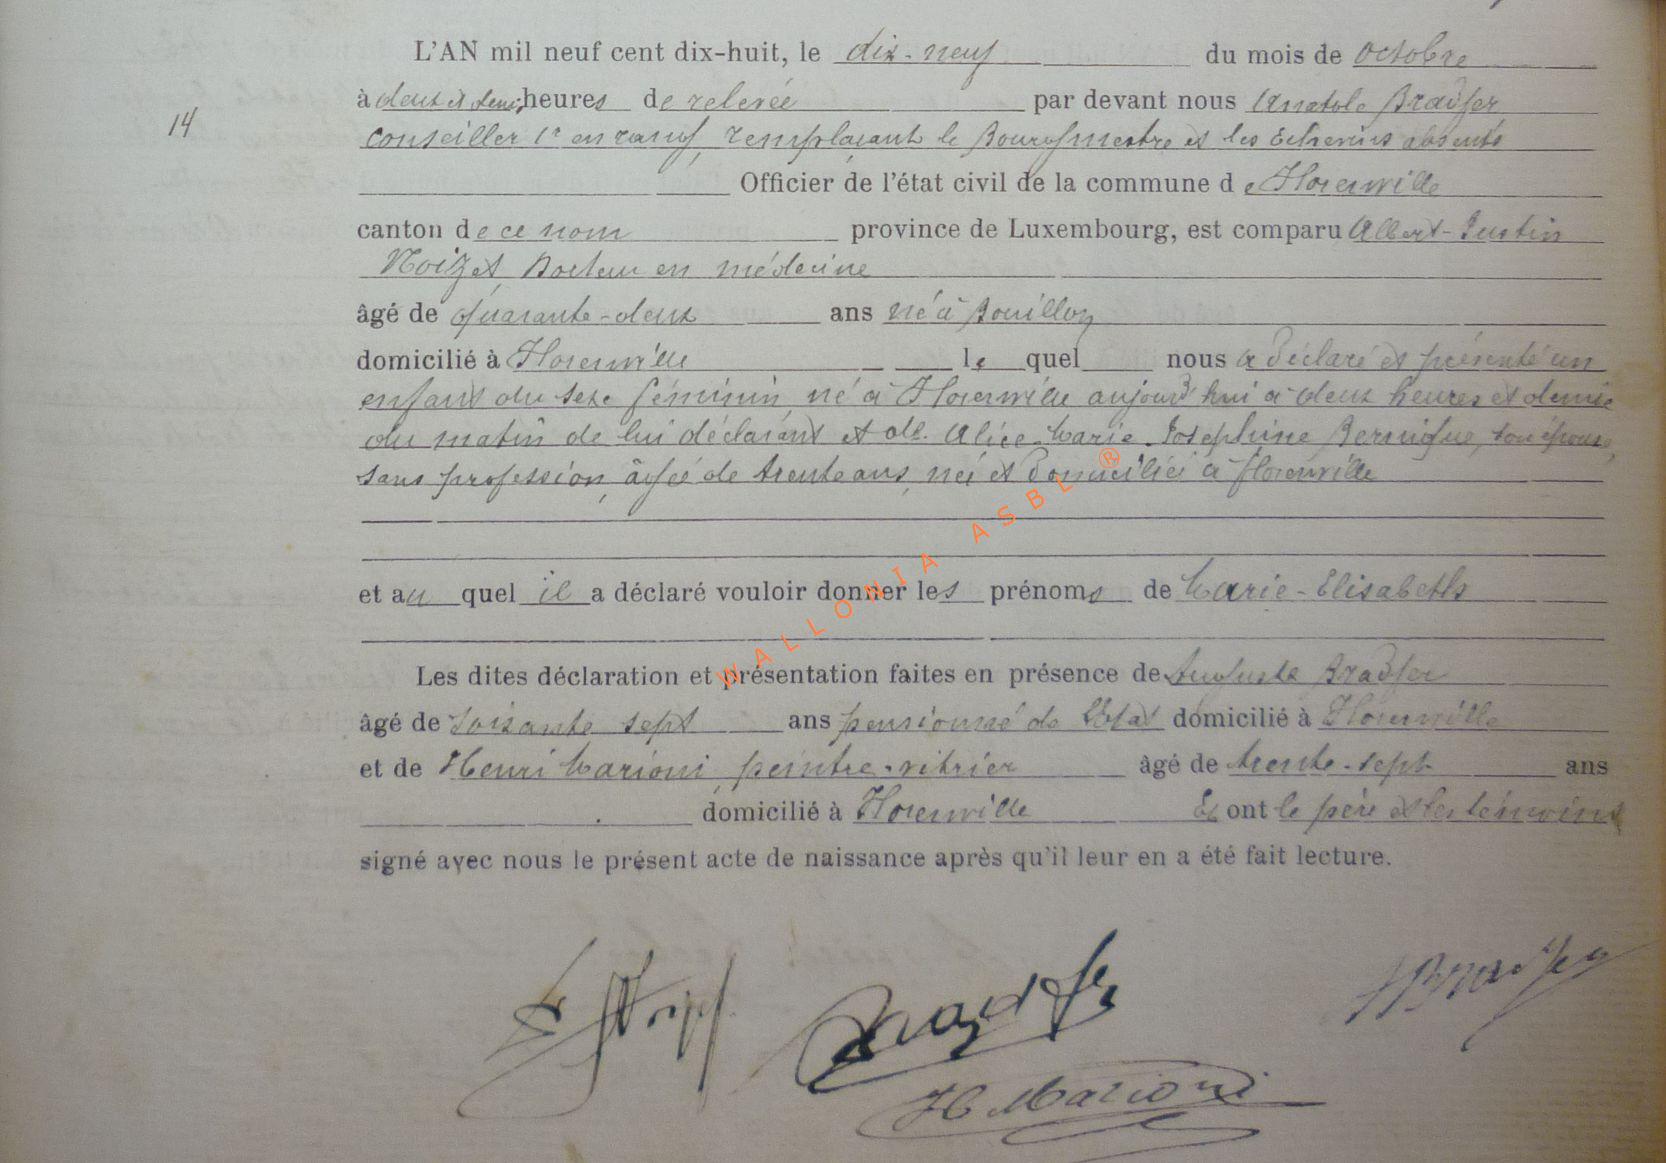 L'AN mil neuf cent dix-huit, le dix-neuf du mois de Octobre
à deux et demi heures de relevée par devant nous Anatole Bradfer
14
Conseiller 1r en rang, remplaçant le Bourgmestre et les Echevins absents
Officier de l'état civil de la commune de Florenville
canton de ce nom province de Luxembourg, est comparu Albert-Justin
Noizet Docteur en médecine
âgé de quarante-deux ans né à Bouillon
domicilié à Florenville le quel nous a déclaré et présenté un
enfant du sexe féminin, né à Florenville aujourd'hui à deux heures et demie
du matin de lui déclarant et de Alice-Marie-Josephine Bernique, son épouse,
sans profession, âgée de trente ans, née et domiciliée à Florenville
et au quel il a déclaré vouloir donner les prénoms de Marie-Elisabeth
Les dites déclaration et présentation faites en présence de Auguste Bradfer
âgé de soixante sept ans pensionné de l'Etat domicilié à Florenville
et de Henri Marioni peintre-vitrier âgé de trente-sept ans
domicilié à Florenville Et ont le père et les témoins
signé avec nous le présent acte de naissance après qu'il leur en a été fait lecture.
Bradfer
H Marioni
WALLONIA ASBL ®